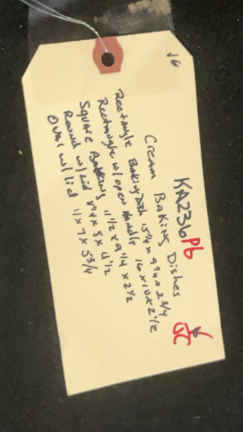 16
KA236Pb
SC
Cream Baking Dishes
Rectangle Baking Dish 15¾ x 9¾ x 2¾
Rectangle w/ open Handle 16 x 10 x 2½
Square Baking 11½ x 9¼ x 2½
Round w/ Lid x 4½
Oval w/ Lid 11 x 7 x 5¾